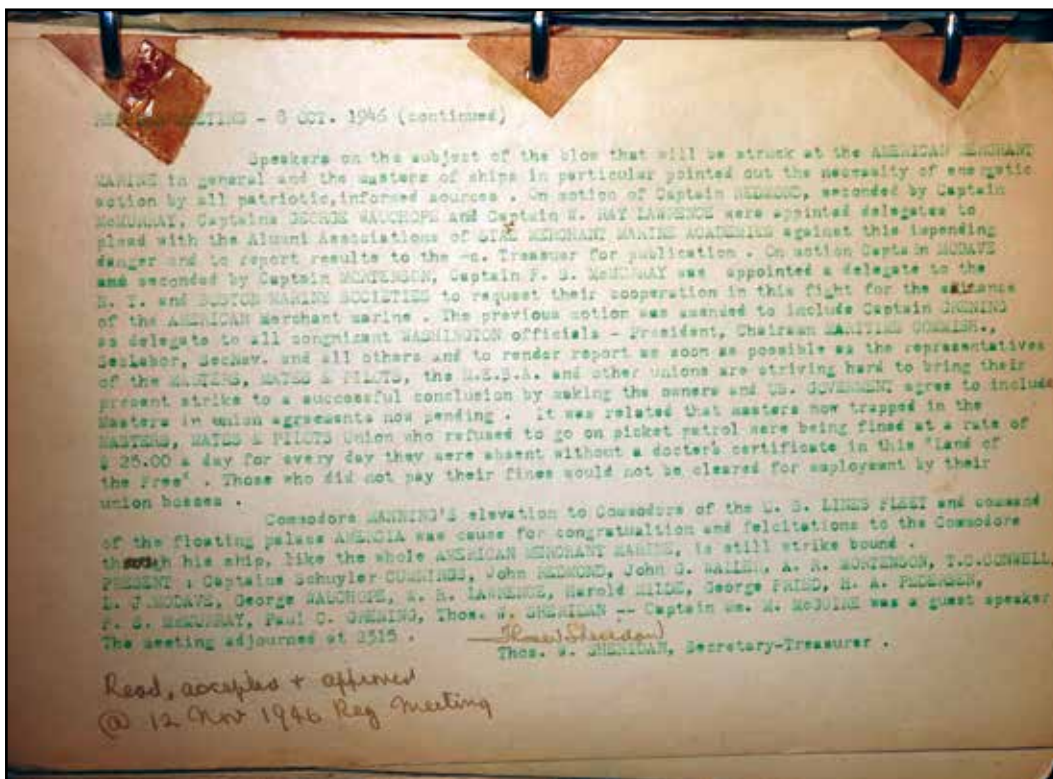 REGULAR MEETING - 8 OCT. 1946 (continued)
Speakers on the subject of the blow that will be struck at the AMERICAN MERCHANT
MARINE in general and the masters of ships in particular pointed out the necessity of energetic
action by all patriotic, informed sources . On motion of Captain REDMOND, seconded by Captain
McMURRAY, Captains GEORGE WAUCHOPE and Captain W. RAY LAWRENCE were appointed delegates to
plead with the Alumni Associations of MERCHANT MARINE ACADEMIES against this impending
danger and to report results to the Treasurer for publication . On motion Captain MODAVE
and seconded by Captain MORTENSON, Captain F. S. McMURRAY was appointed a delegate to the
N. Y. and BOSTON MARINE SOCIETIES to request their cooperation in this fight for the
of the AMERICAN Merchant marine . The previous motion was amended to include Captain GRENING
as delegate to all congnizant WASHINGTON officials - President, Chairman MARITIME COMMISH.,
SecLabor, SecNav. and all others and to render report as soon as possible as the representatives
of the MASTERS, MATES & PILOTS, the M.E.B.A. and other unions are striving hard to bring their
present strike to a successful conclusion by making the owners and US. GOVERMENT agree to include
Masters in union agreements now pending . It was related that masters now trapped in the
MASTERS, MATES & PILOTS Union who refused to go on picket patrol were being fined at a rate of
$ 25.00 a day for every day they were absent without a doctor's certificate in this "Land of
the Free" . Those who did not pay their fines would not be cleared for employment by their
union bosses .
Commodore MANNING'S elevation to Commodore of the U. S. LINES FLEET and command
of the floating palace AMERCIA was cause for congratualtion and felcitations to the Commodore
though his ship, like the whole AMERICAN MERCHANT MARINE, is still strike bound .
PRESENT : Captains Schuyler CUMMINGS, John REDMOND, John G. WALLEN, A. R. MORTENSON, T.C.CONWELL,
L. J.MODAVE, George WAUCHOPE, W. R. LAWRENCE, Harold MILDE, George FRIED, H. A. PEDERSEN,
F. S. McMURRAY, Paul C. GRENING, Thos. W. SHERIDAN -- Captain Wm. M. McGUIRE was a guest speaker
The meeting adjourned at 2315 .
Thos. W. SHERIDAN, Secretary-Treasurer .
Read, accepted + approved
@ 12 Nov 1946 Reg Meeting